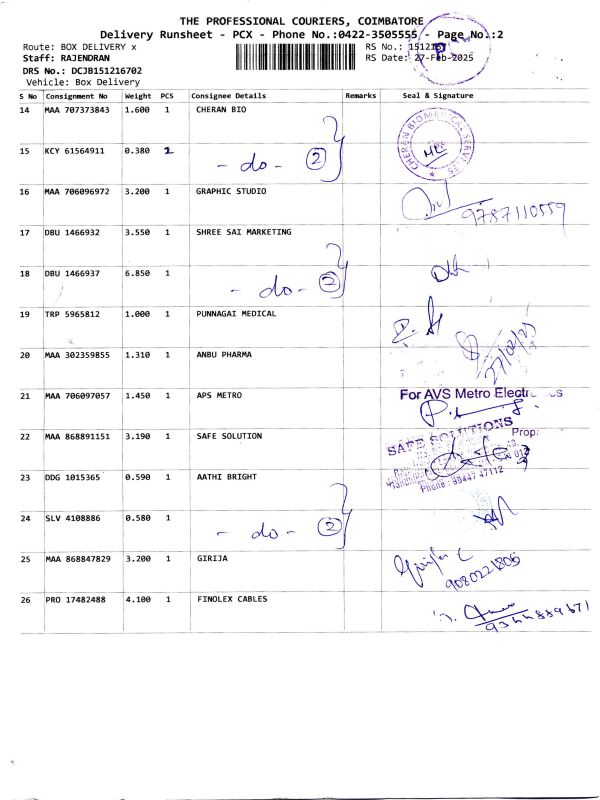 THE PROFESSIONAL COURIERS, COIMBATORE
Delivery Runsheet - PCX - Phone No.:0422-3505555 - Page No.:2
Route: BOX DELIVERY x RS No.:
Staff: RAJENDRAN RS Date: 27-Feb-2025
DRS No.: DCJB151216702
Vehicle: Box Delivery
S No Consignment No Weight PCS Consignee Details Remarks Seal & Signature
14 MAA 707373843 1.600 1 CHERAN BIO
CHERAN BIOMEDICAL SERVICES
15 KCY 61564911 0.380 2 - do - 2
16 MAA 706096972 3.200 1 GRAPHIC STUDIO
9787110559
17 DBU 1466932 3.550 1 SHREE SAI MARKETING
18 DBU 1466937 6.850 1 - do - 2
19 TRP 5965812 1.000 1 PUNNAGAI MEDICAL
20 MAA 302359855 1.310 1 ANBU PHARMA
27/02/25
21 MAA 706097057 1.450 1 APS METRO For AVS Metro Electronics
Prop:
22 MAA 868891151 3.190 1 SAFE SOLUTION SAFE SOLUTIONS
Phone : 98447 47112
23 DDG 1015365 0.590 1 AATHI BRIGHT
24 SLV 4108886 0.580 1 - do - 2
25 MAA 868847829 3.200 1 GIRIJA
9080221806
26 PRO 17482488 4.100 1 FINOLEX CABLES
9344889671